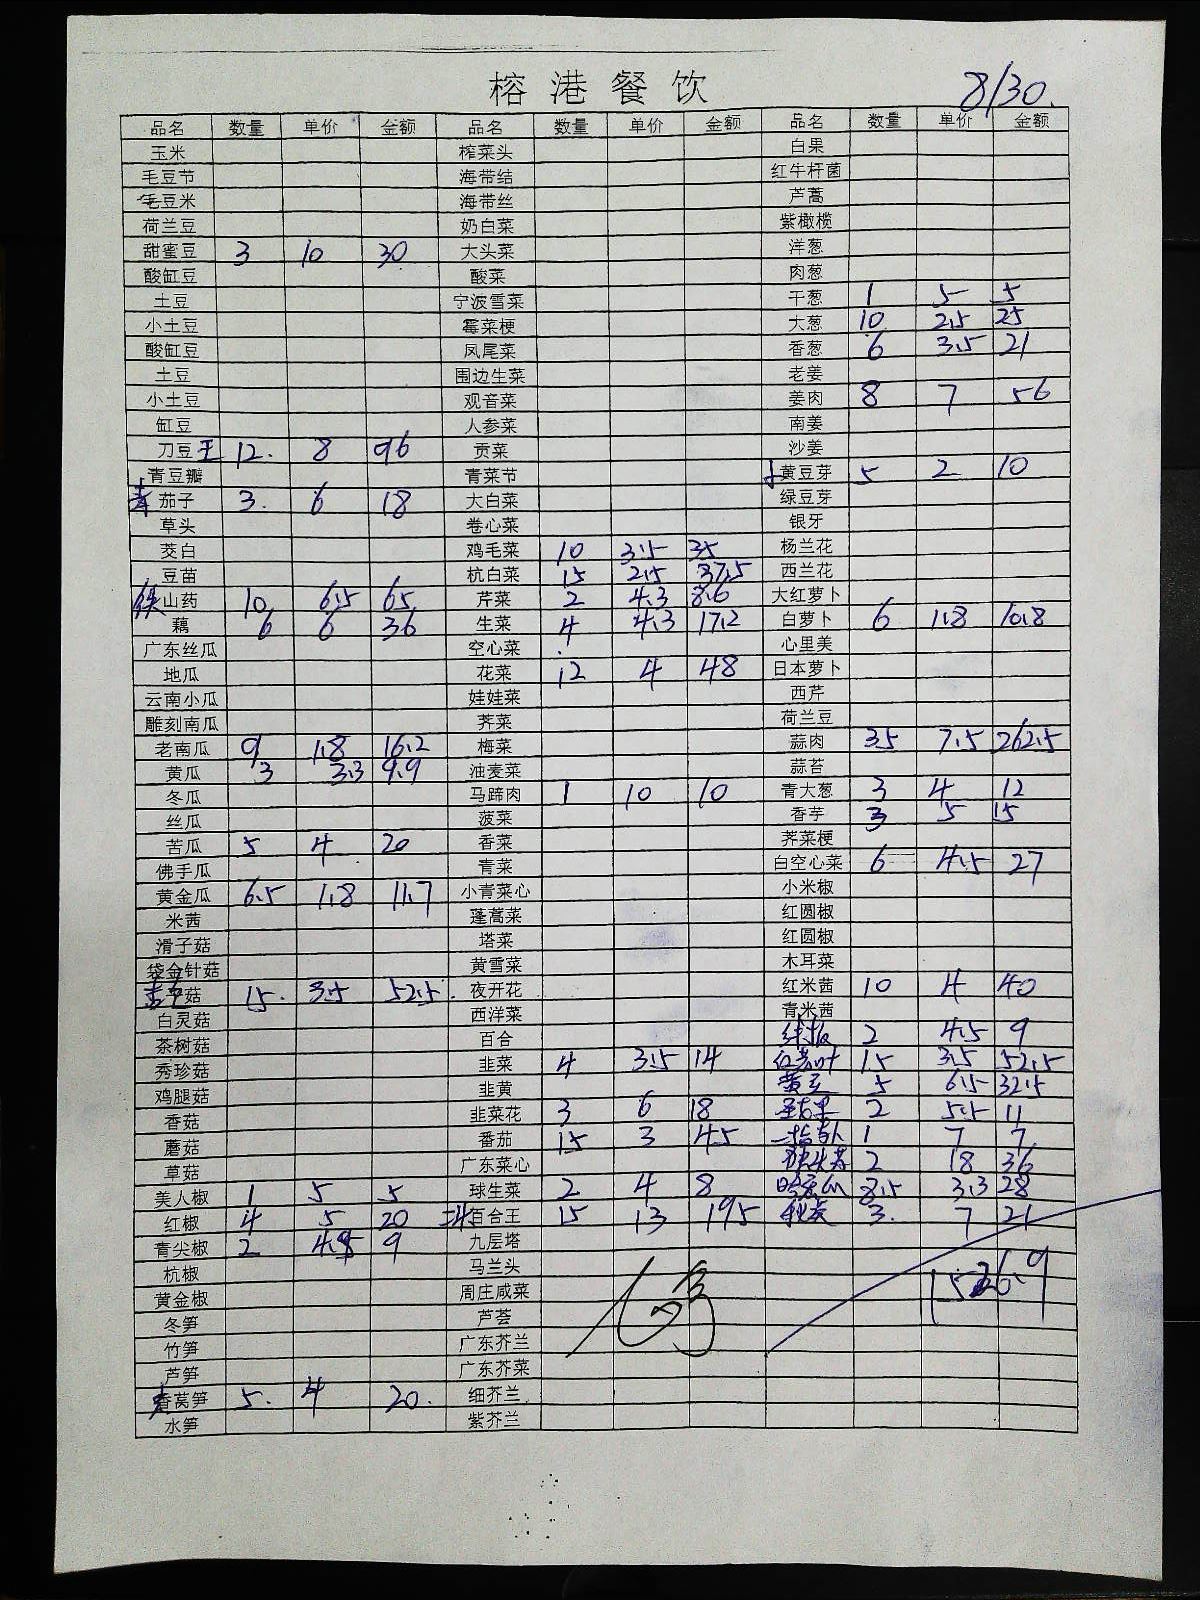 榕港餐饮
8/30.
品名 数量 单价 金额 品名 数量 单价 金额 品名 数量 单价 金额
玉米 榨菜头 白果
毛豆节 海带结 红牛杆菌
毛豆米 海带丝 芦蒿
荷兰豆 奶白菜 紫橄榄
甜蜜豆 3 10 30 大头菜 洋葱
酸缸豆 酸菜 肉葱
土豆 宁波雪菜 干葱 1 5 5
小土豆 霉菜梗 大葱 10 2.5 25
酸缸豆 凤尾菜 香葱 6 3.5 21
土豆 围边生菜 老姜
小土豆 观音菜 姜肉 8 7 56
缸豆 人参菜 南姜
刀豆王 12. 8 96 贡菜 沙姜
青豆瓣 青菜节 黄豆芽 5 2 10
茄子 3. 6 18 大白菜 绿豆芽
草头 卷心菜 银牙
茭白 鸡毛菜 10 3.5 35 杨兰花
豆苗 杭白菜 15 2.5 37.5 西兰花
铁山药 10 6.5 65 芹菜 2 4.3 8.6 大红萝卜
藕 6 6 36 生菜 4 4.3 17.2 白萝卜 6 1.8 10.8
广东丝瓜 空心菜 心里美
地瓜 花菜 12 4 48 日本萝卜
云南小瓜 娃娃菜 西芹
雕刻南瓜 荠菜 荷兰豆
老南瓜 9 1.8 16.2 梅菜 蒜肉 35 7.5 262.5
黄瓜 3 3.3 9.9 油麦菜 蒜苔
冬瓜 马蹄肉 1 10 10 青大葱 3 4 12
丝瓜 菠菜 香芋 3 5 15
苦瓜 5 4 20 香菜 荠菜梗
佛手瓜 青菜 白空心菜 6 4.5 27
黄金瓜 6.5 1.8 11.7 小青菜心 小米椒
米茜 蓬蒿菜 红圆椒
滑子菇 塔菜 红圆椒
袋金针菇 黄雪菜 木耳菜
菇 15. 3.5 52.5. 夜开花 红米茜 10 4 40
白灵菇 西洋菜 青米茜
茶树菇 百合 2 4.5 9
秀珍菇 韭菜 4 3.5 14 15 3.5 52.5
鸡腿菇 韭黄 黄豆 5 6.5 32.5
香菇 韭菜花 3 6 18 2 5.5 11
蘑菇 番茄 15 3 45 1 7 7
草菇 广东菜心 2 18 36
美人椒 1 5 5 球生菜 2 4 8 8.5 3.3 28
红椒 4 5 20 百合王 15 13 195 3. 7 21
青尖椒 2 4.5 9 九层塔
杭椒 马兰头
黄金椒 周庄咸菜
冬笋 芦荟
竹笋 广东芥兰
芦笋 广东芥菜
香莴笋 5. 4 20. 细芥兰
水笋 紫芥兰